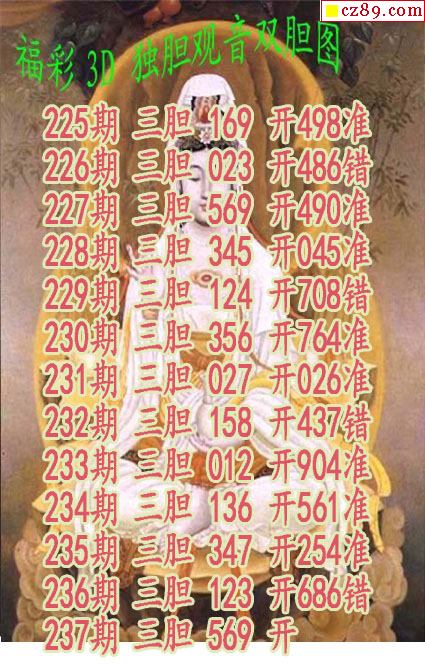 cz89.com
福彩 3D 独胆观音双胆图
225期 三胆 169 开498准
226期 三胆 023 开486错
227期 三胆 569 开490准
228期 三胆 345 开045准
229期 三胆 124 开708错
230期 三胆 356 开764准
231期 三胆 027 开026准
232期 三胆 158 开437错
233期 三胆 012 开904准
234期 三胆 136 开561准
235期 三胆 347 开254准
236期 三胆 123 开686错
237期 三胆 569 开